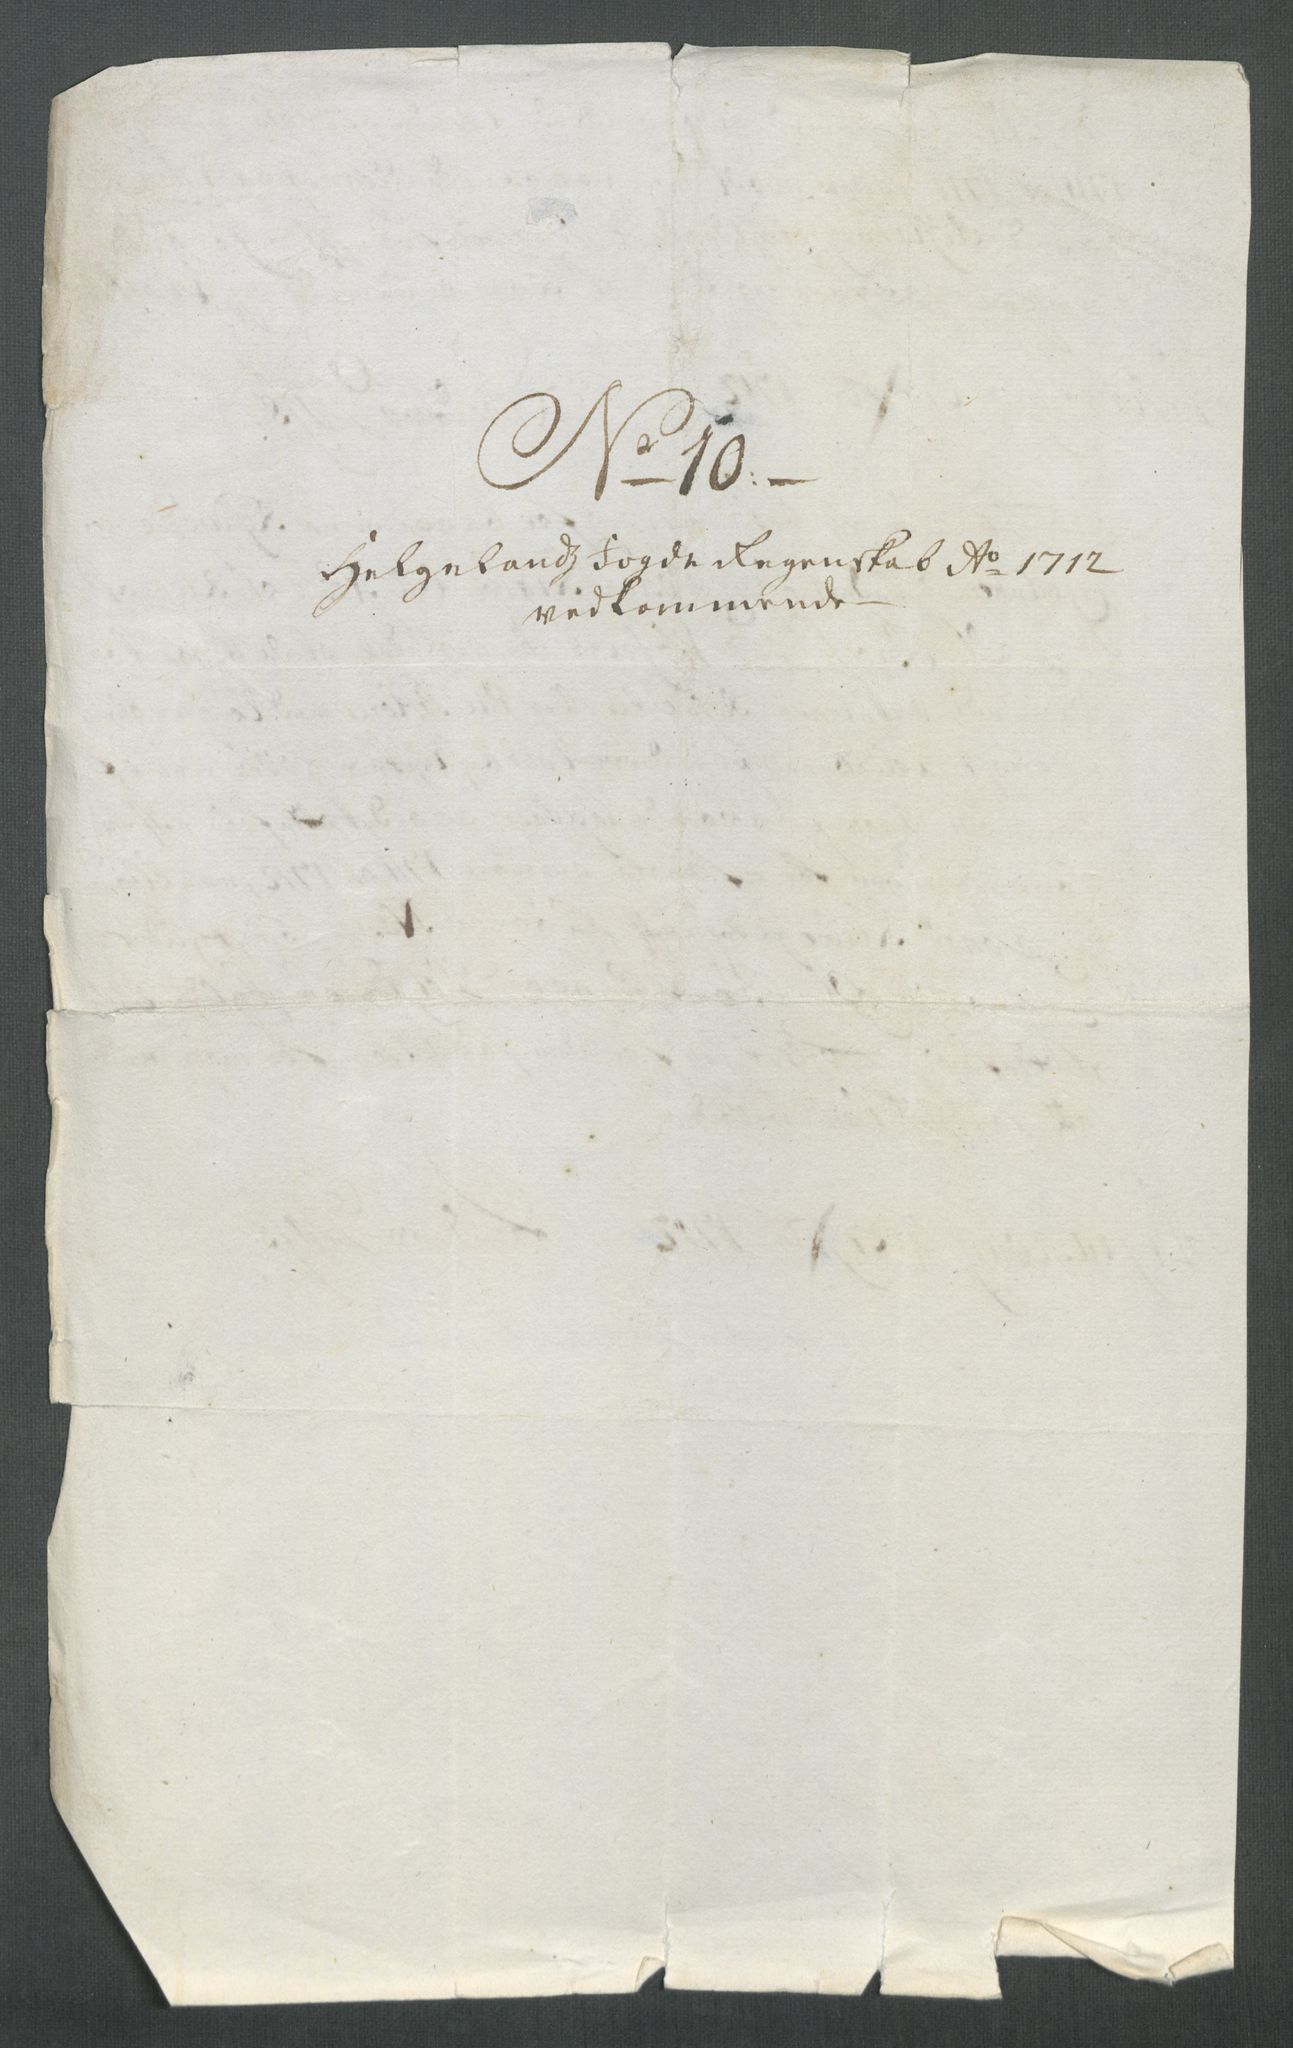 No 10.
Helgelandz Fogde Regenskab Ao 1712
vedkommende